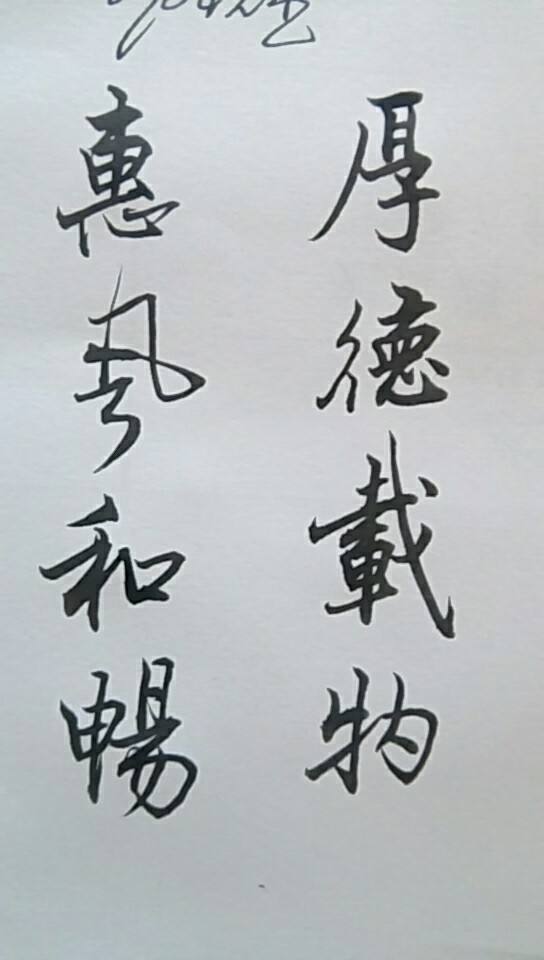 厚德載物
惠風和暢